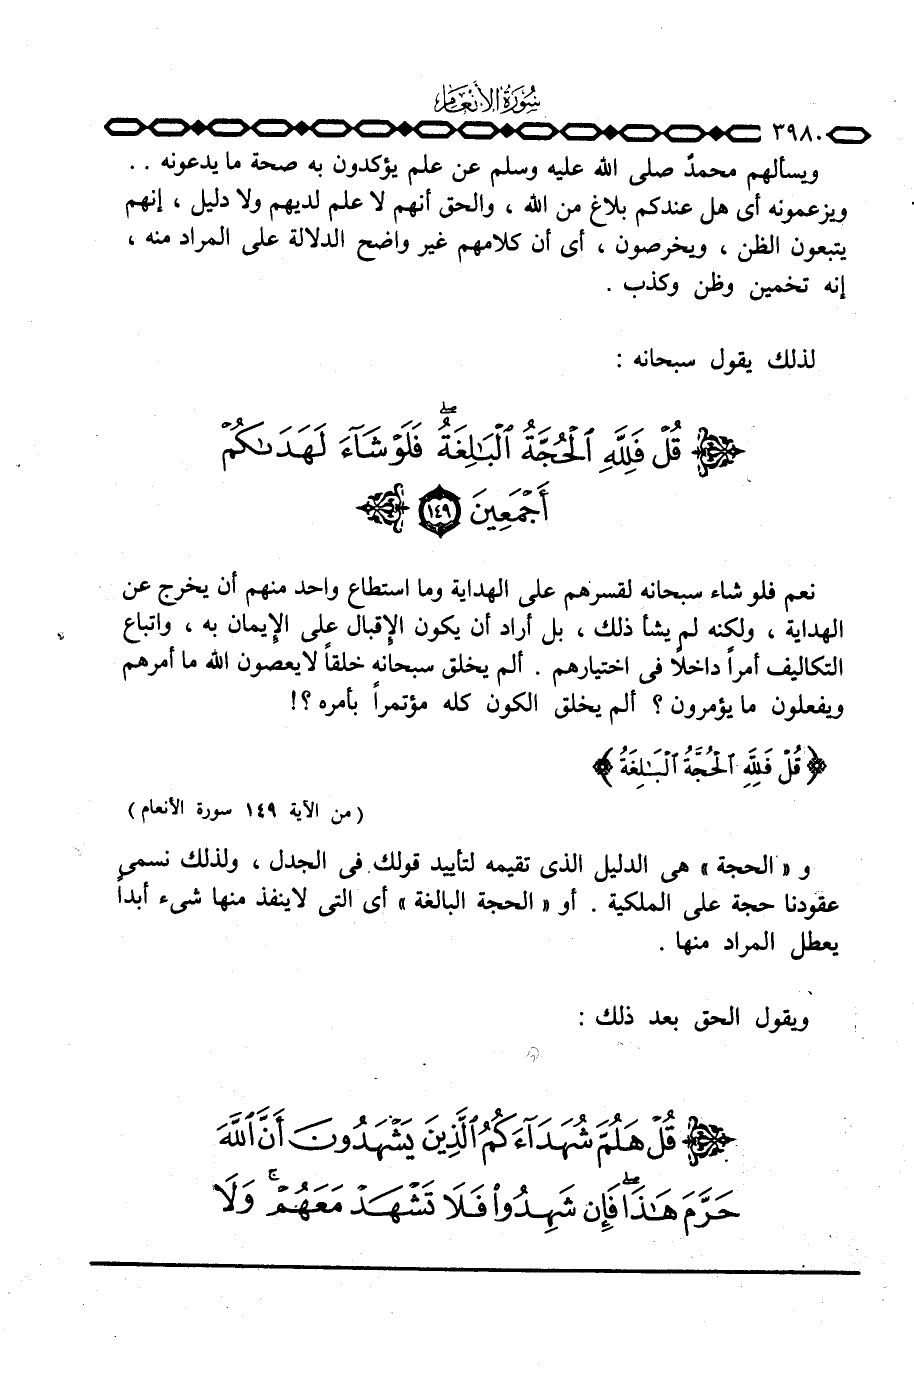 سُورَةُ الأَنْعَامِ
٣٩٨٠
ويسألهم محمدٌ صلى الله عليه وسلم عن علم يؤكدون به صحة ما يدعونه . .
ويزعمونه أى هل عندكم بلاغ من الله ، والحق أنهم لا علم لديهم ولا دليل ، إنهم
يتبعون الظن ، ويخرصون ، أى أن كلامهم غير واضح الدلالة على المراد منه ،
إنه تخمين وظن وكذب .
لذلك يقول سبحانه :
﴿ قُلْ فَلِلَّهِ ٱلْحُجَّةُ ٱلْبَـٰلِغَةُ ۖ فَلَوْ شَآءَ لَهَدَىٰكُمْ
أَجْمَعِينَ ١٤٩ ﴾
نعم فلو شاء سبحانه لقسرهم على الهداية وما استطاع واحد منهم أن يخرج عن
الهداية ، ولكنه لم يشأ ذلك ، بل أراد أن يكون الإقبال على الإيمان به ، واتباع
التكاليف أمراً داخلاً فى اختيارهم . ألم يخلق سبحانه خلقاً لا يعصون الله ما أمرهم
ويفعلون ما يؤمرون ؟ ألم يخلق الكون كله مؤتمراً بأمره ؟!
﴿ قُلْ فَلِلَّهِ ٱلْحُجَّةُ ٱلْبَـٰلِغَةُ ﴾
( من الآية ١٤٩ سورة الأنعام )
و « الحجة » هى الدليل الذى تقيمه لتأييد قولك فى الجدل ، ولذلك نسمى
عقودنا حجة على الملكية . أو « الحجة البالغة » أى التى لا ينفذ منها شىء أبداً
يعطل المراد منها .
ويقول الحق بعد ذلك :
﴿ قُلْ هَلُمَّ شُهَدَآءَكُمُ ٱلَّذِينَ يَشْهَدُونَ أَنَّ ٱللَّهَ
حَرَّمَ هَـٰذَا ۖ فَإِن شَهِدُوا۟ فَلَا تَشْهَدْ مَعَهُمْ ۚ وَلَا